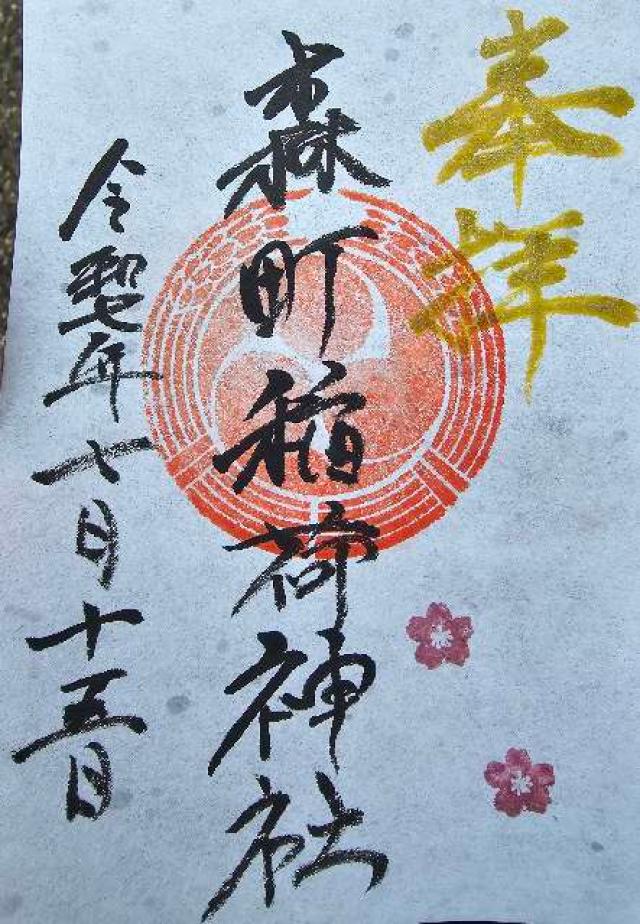 奉拝
森町稲荷神社
令和七年七月十五日